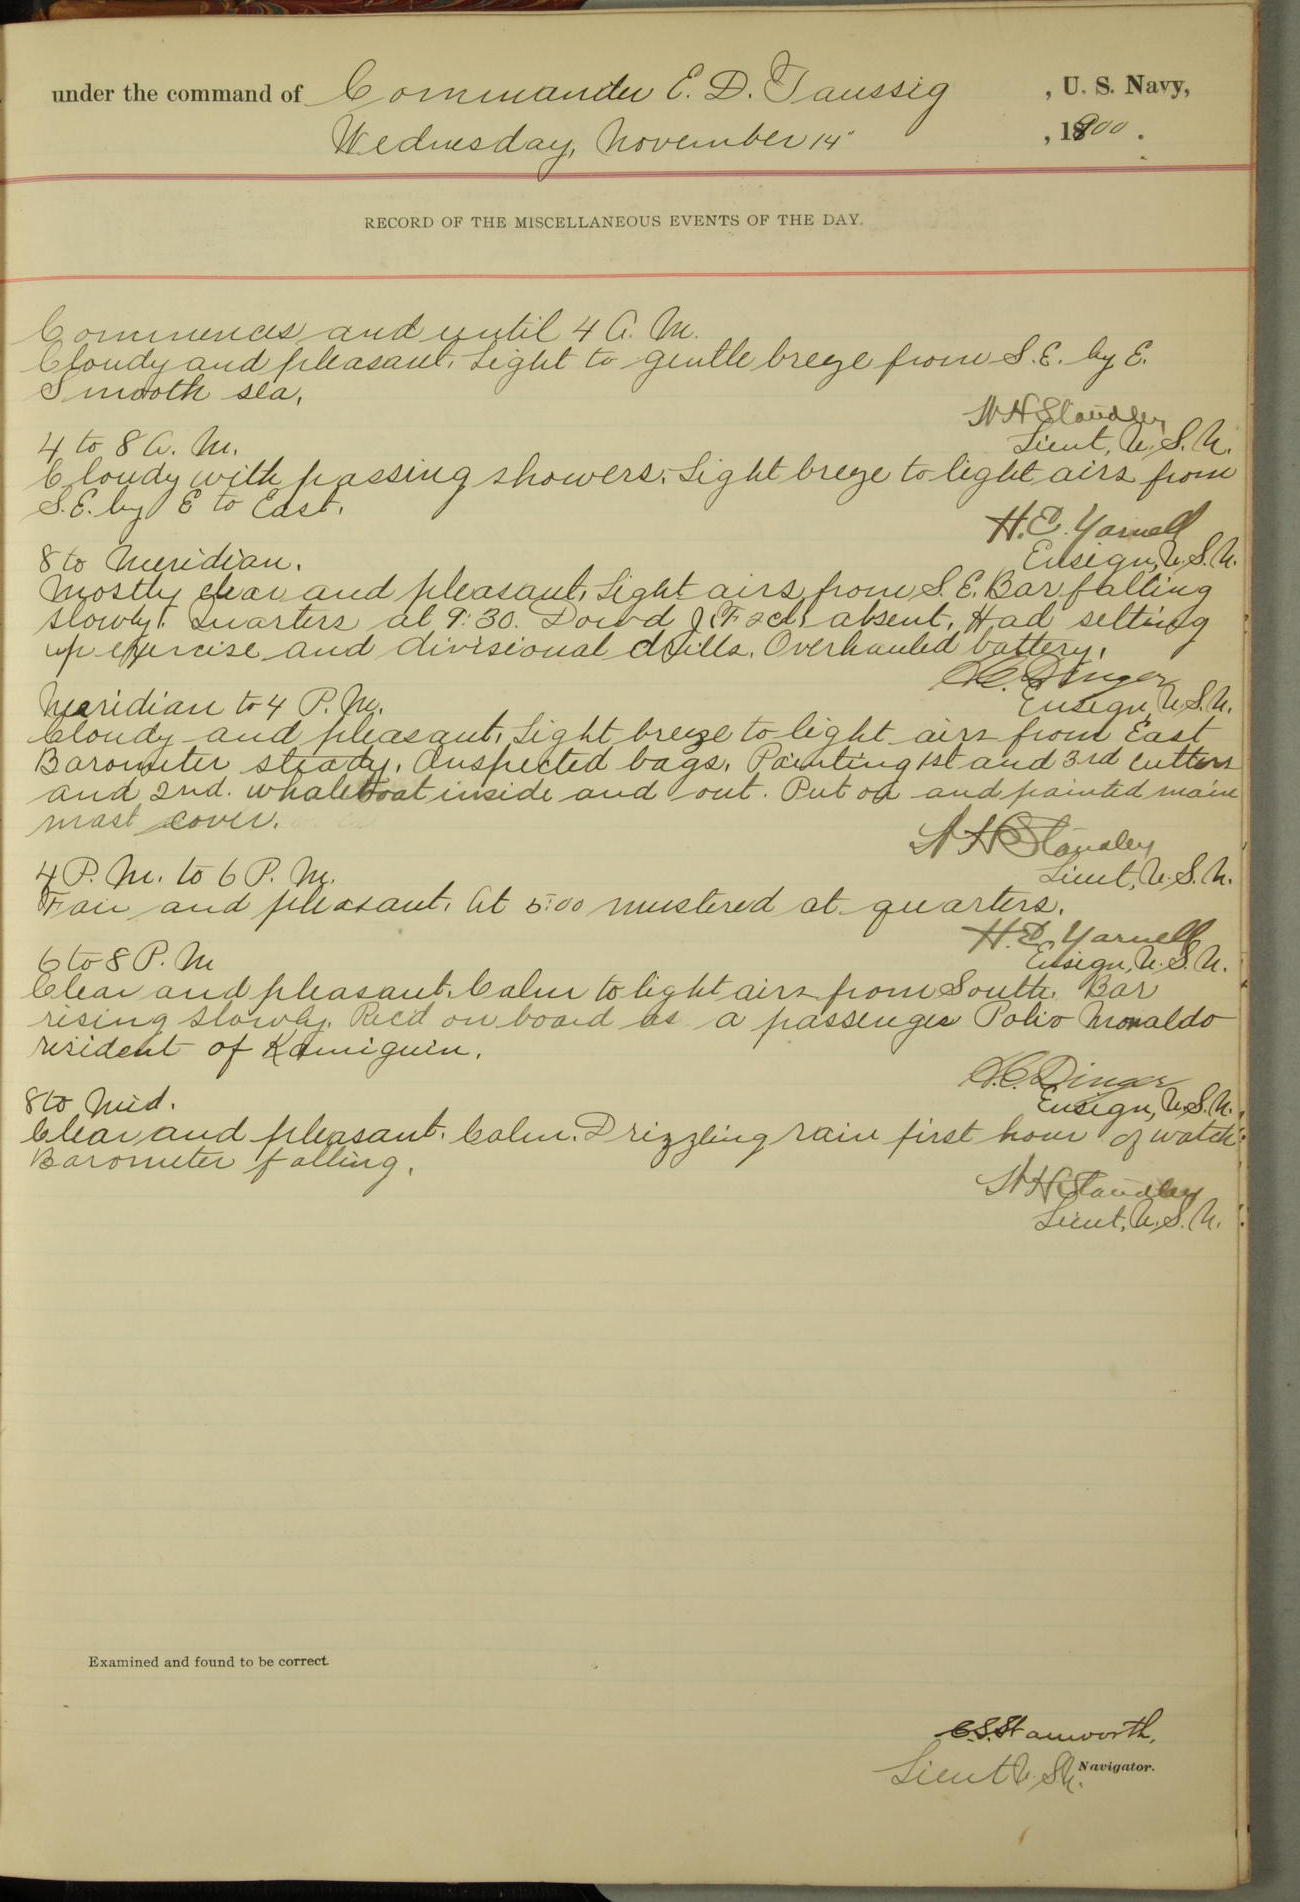 under the command of Commander E. D. Taussig, U. S. Navy,
Wednesday, November 14", 1900.
RECORD OF THE MISCELLANEOUS EVENTS OF THE DAY.
Commences and until 4 A. M.
Cloudy and pleasant. Light to gentle breeze from S.E. by E.
Smooth sea.
W H Standley
Lieut, U. S. N.
4 to 8 A. M.
Cloudy with passing showers. Light breeze to light airs from
S.E. by E to East.
H. E. Yarnell
Ensign, U. S. N.
8 to Meridian.
Mostly clear and pleasant. Light airs from S. E. Bar falling
slowly. Quarters at 9:30. Dowd J. F 2cl. absent. Had setting
up exercise and divisional drills. Overhauled battery.
H.C. Dinger
Ensign, U.S.N.
Meridian to 4 P. M.
Cloudy and pleasant. Light breeze to light airs from East
Barometer steady. Inspected bags. Painting 1st and 3rd cutters
and 2nd. whaleboat inside and out. Put on and painted main
mast cover.
W H Standley
Lieut, U. S. N.
4 P. M. to 6 P. M.
Fair and pleasant. At 5:00 mustered at quarters.
H. E. Yarnell
Ensign, U. S. N.
6 to 8 P. M
Clear and pleasant. Calm to light airs from South. Bar
rising slowly. Rec'd on board as a passenger Polio Monaldo
resident of Kamiguin.
H.C. Dinger
Ensign, U.S.N.
8 to Mid.
Clear and pleasant. Calm. Drizzling rain first hour of watch
Barometer falling.
W H Standley
Lieut, U. S. N.
Examined and found to be correct.
C.S. Stanworth,
Lieut U. S. N. Navigator.